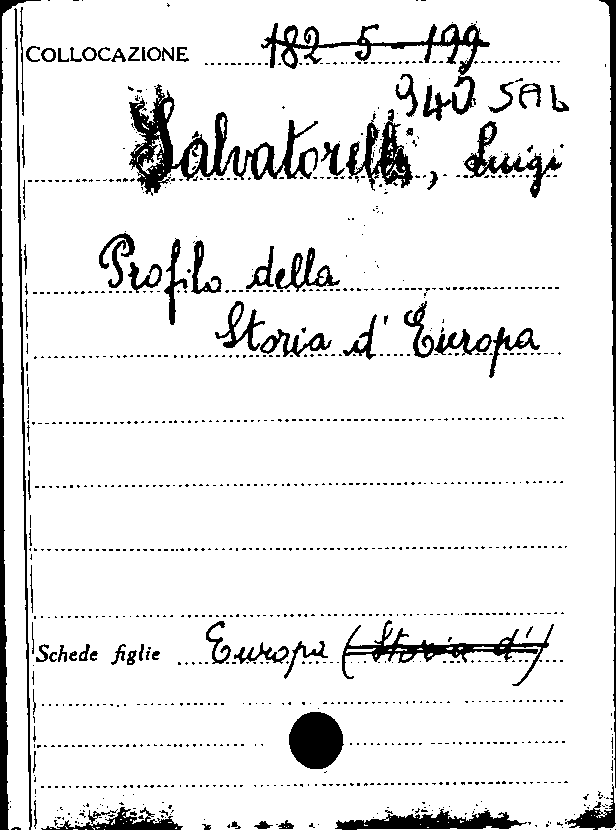 COLLOCAZIONE 182-5-199
940 SAL
Salvatorelli, Luigi
Profilo della
Storia d'Europa
Schede figlie Europa (Storia d')